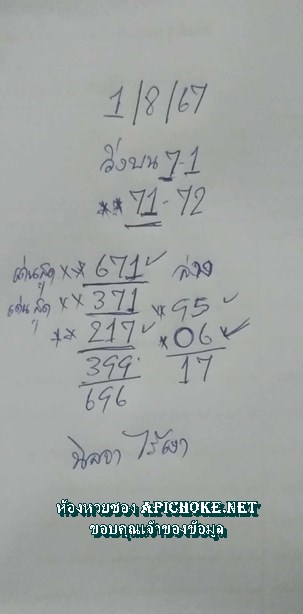 1/8/67
วิ่งบน 7-1
** 71-72
เด่นสุด ** 671 ล่าง
เด่นสุด ** 371 ** 95
** 217 * 06
399 17
696
นิลจา ไร้เงา
ห้องหวยซอง APICHOKE.NET
ขอบคุณเจ้าของข้อมูล